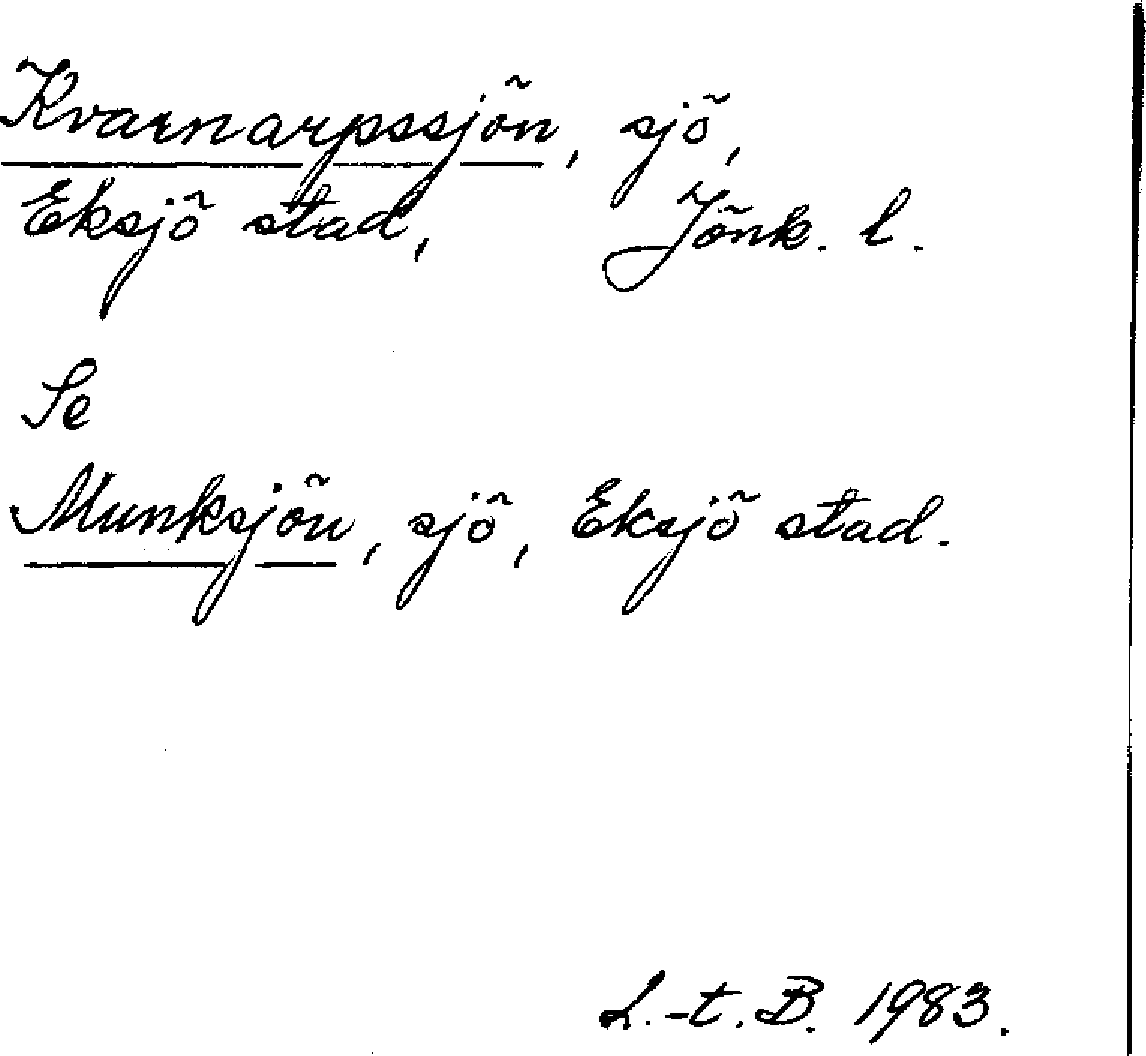 Kvarnarpssjön, sjö,
Eksjö stad, Jönk. l.
Se
Munksjön, sjö, Eksjö stad.
L.-t. B. 1983.